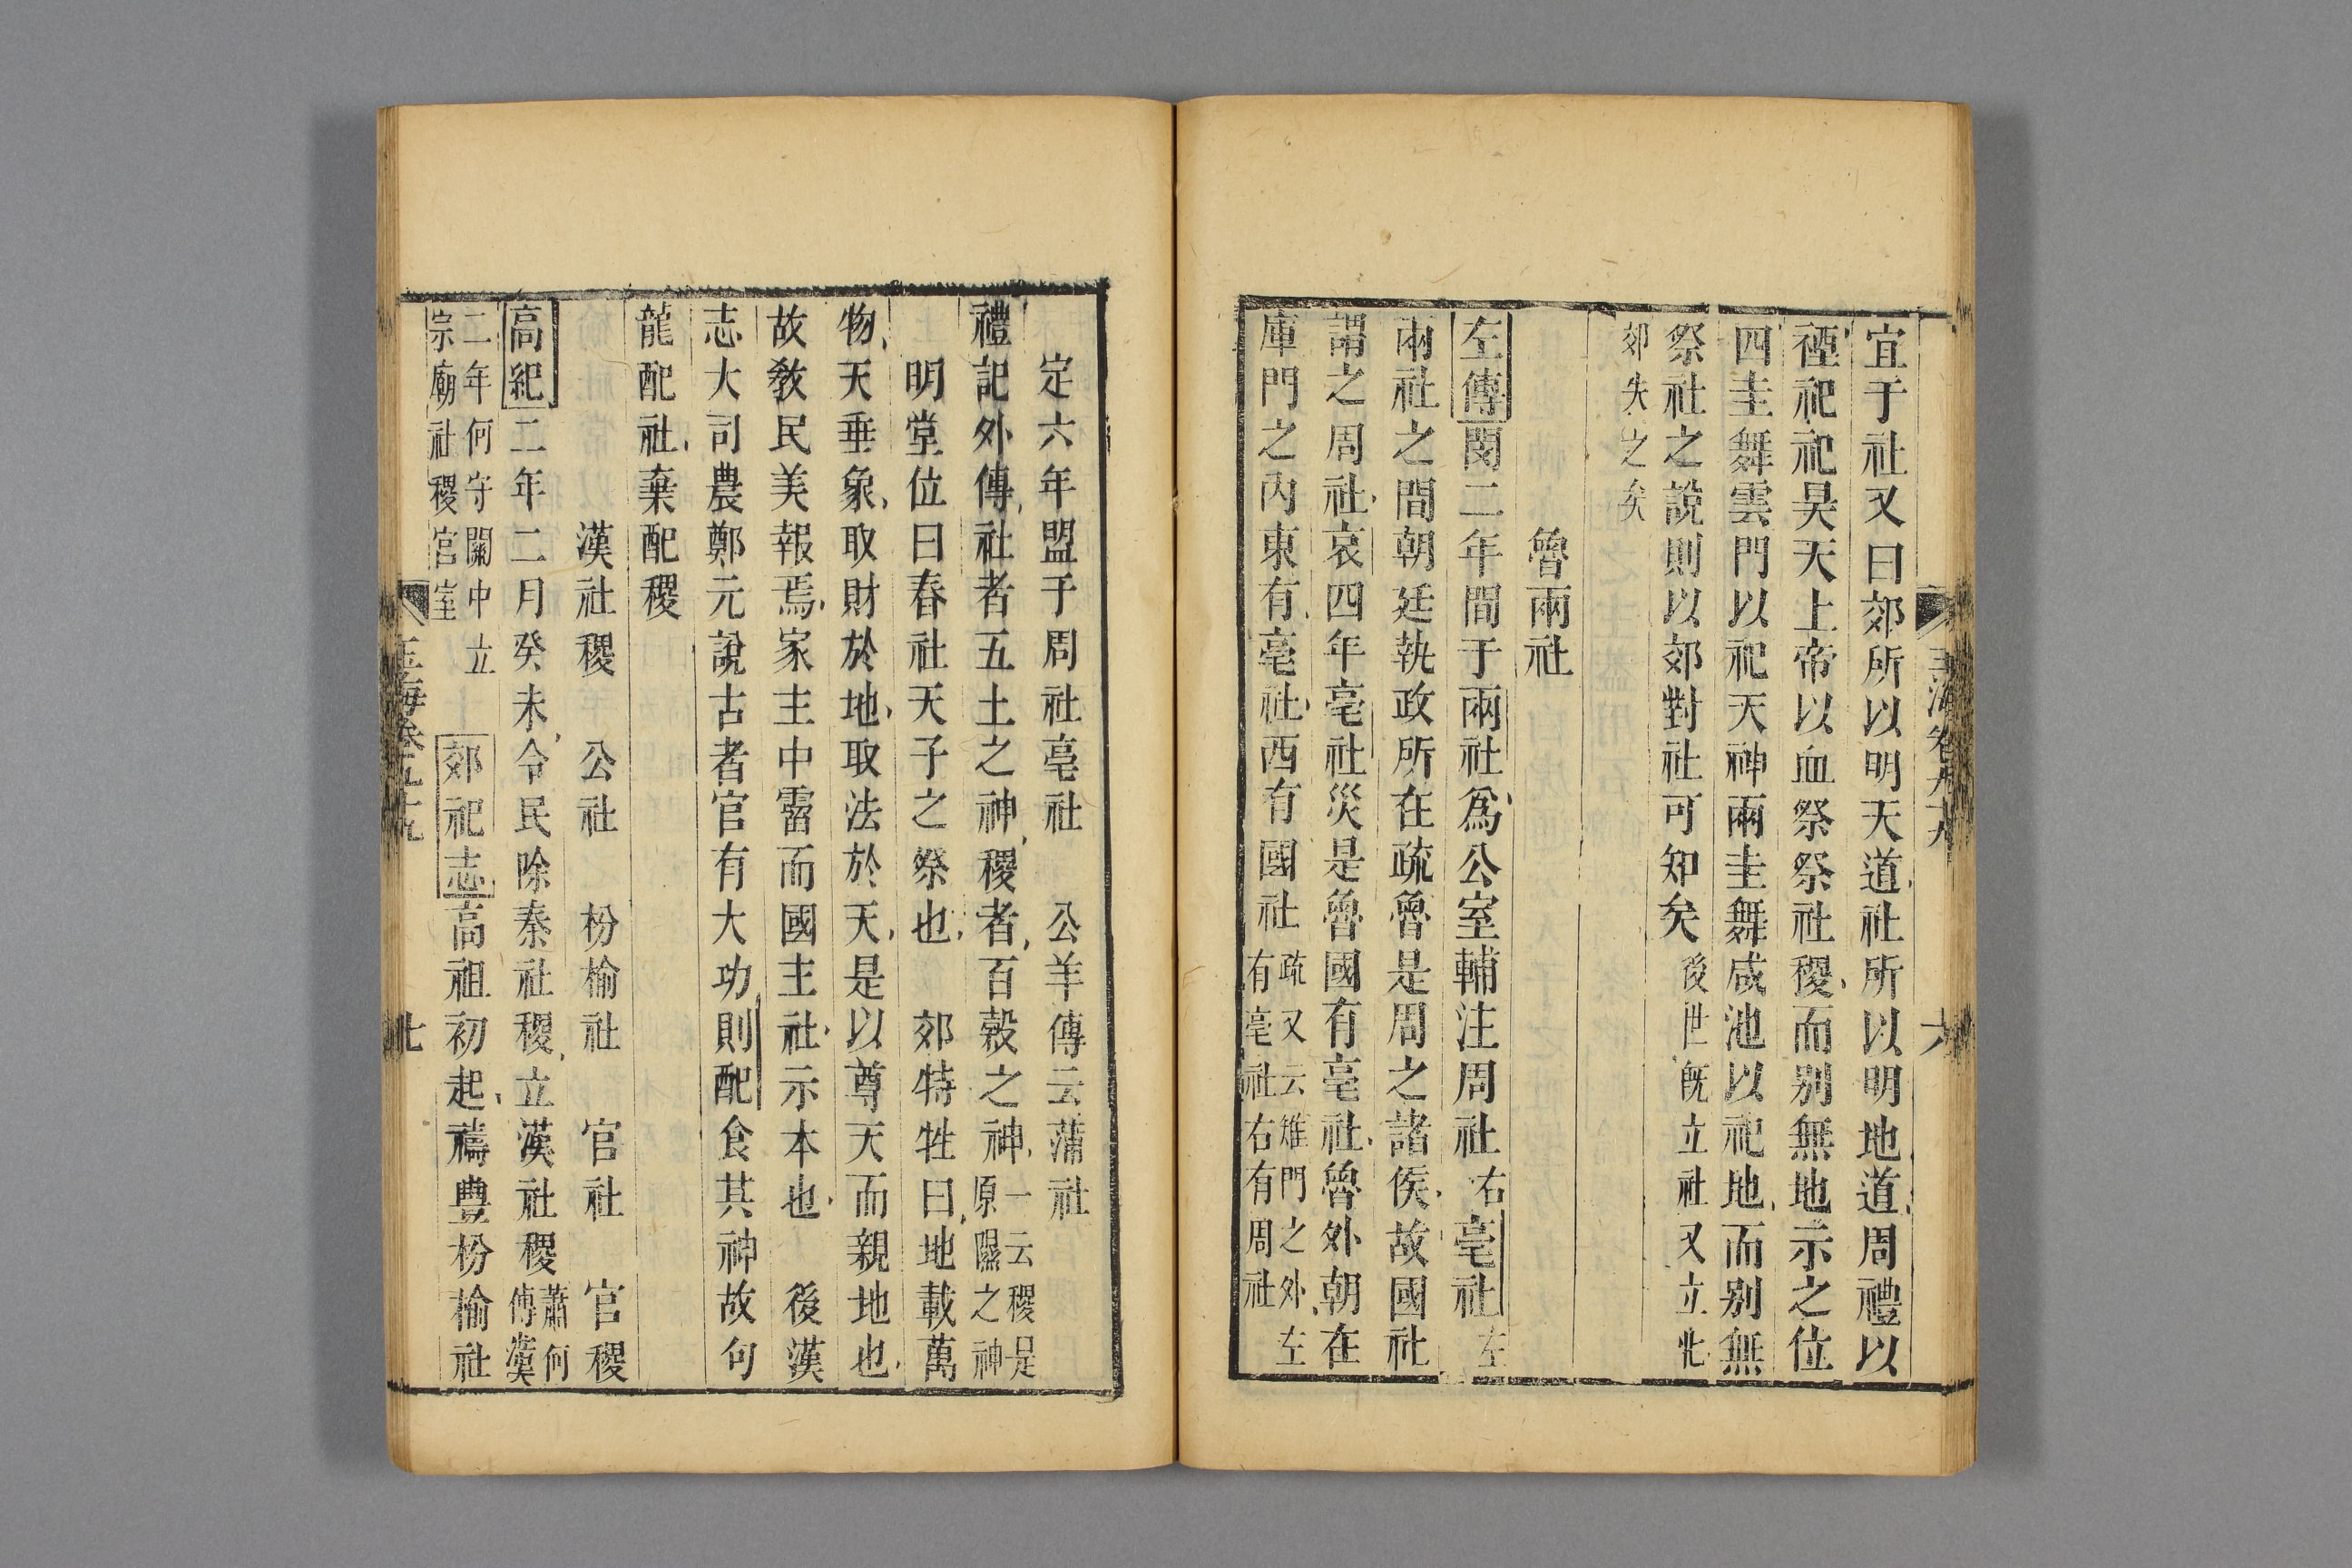 宜于社又曰郊所以明天道社所以明地道周禮以
禋祀祀昊天上帝以血祭祭社稷而别無地示之位
四圭舞雲門以祀天神兩圭舞咸池以祀地而别無
祭社之說則以郊對社可知矣後世旣立社又立北
郊失之矣
魯兩社
左傳閔二年間于兩社爲公室輔注周社右亳社左
兩社之間朝廷執政所在疏魯是周之諸侯故國社
謂之周社哀四年亳社災是魯國有亳社魯外朝在
庫門之內東有亳社西有國社疏又云雉門之外左
有亳社右有周社
定六年盟于周社亳社 公羊傳云蒲社
禮記外傳社者五土之神稷者百穀之神一云稷是
原隰之神
明堂位曰春社天子之祭也 郊特牲曰地載萬
物天垂象取財於地取法於天是以尊天而親地也
故敎民美報焉家主中霤而國主社示本也 後漢
志大司農鄭元說古者官有大功則配食其神故句
龍配社棄配稷
漢社稷 公社 枌榆社 官社 官稷
高紀二年二月癸未令民除秦社稷立漢社稷蕭何
傳漢
二年何守關中立
宗廟社稷宮室
郊祀志高祖初起禱豐枌榆社
七